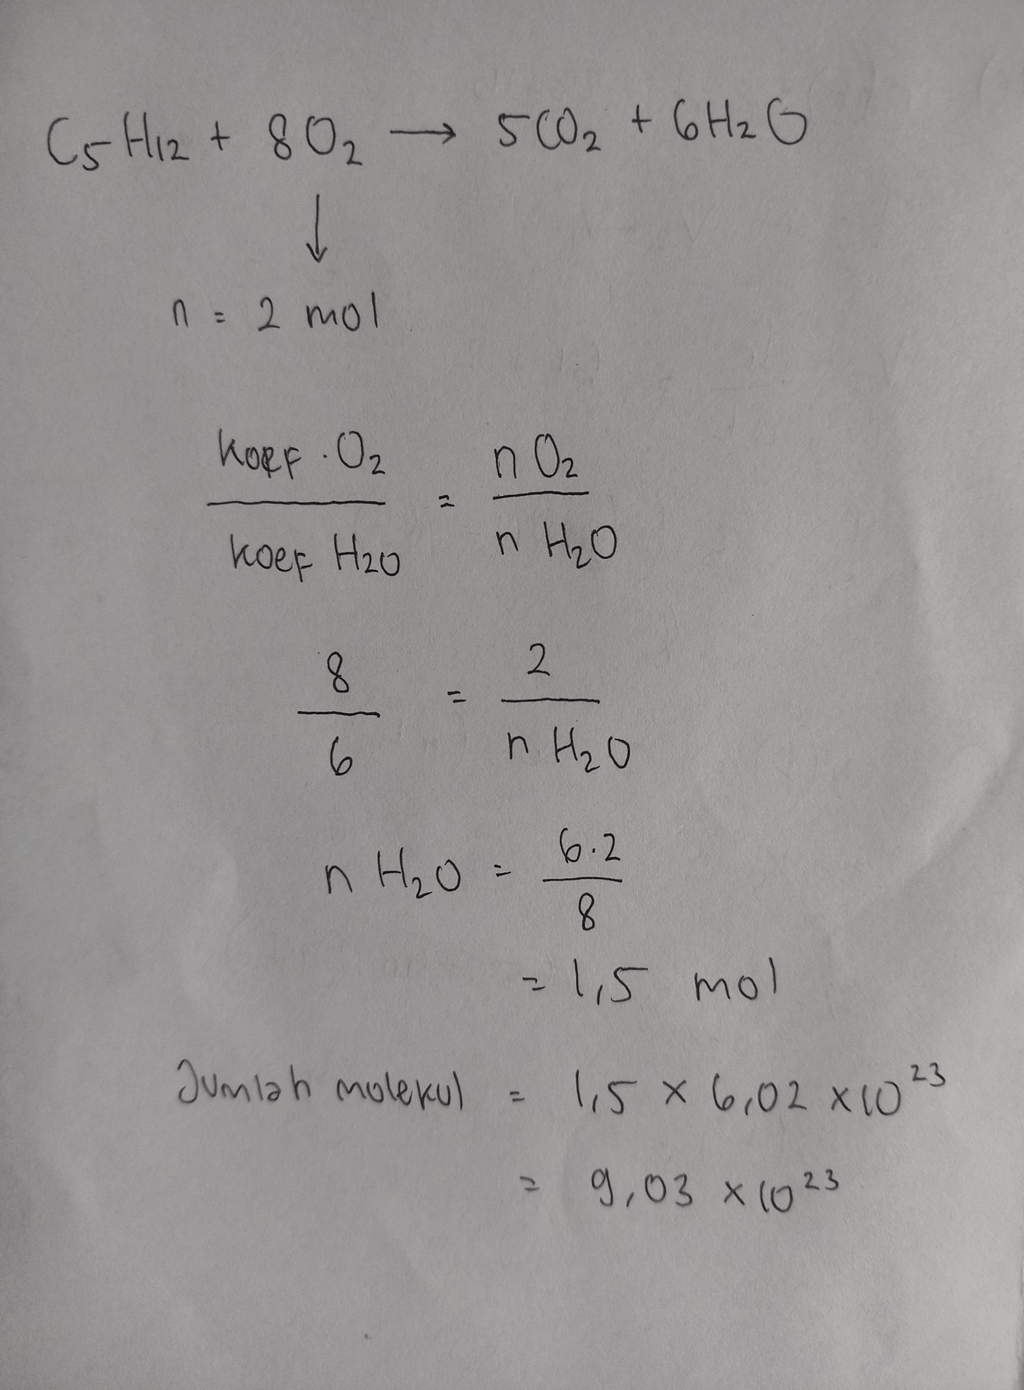 C5H12 + 8O2 → 5CO2 + 6H2O
↓
n = 2 mol
koef. O2 / koef H2O = n O2 / n H2O
8 / 6 = 2 / n H2O
n H2O = 6.2 / 8
= 1,5 mol
Jumlah molekul = 1,5 x 6,02 x 10^23
= 9,03 x 10^23